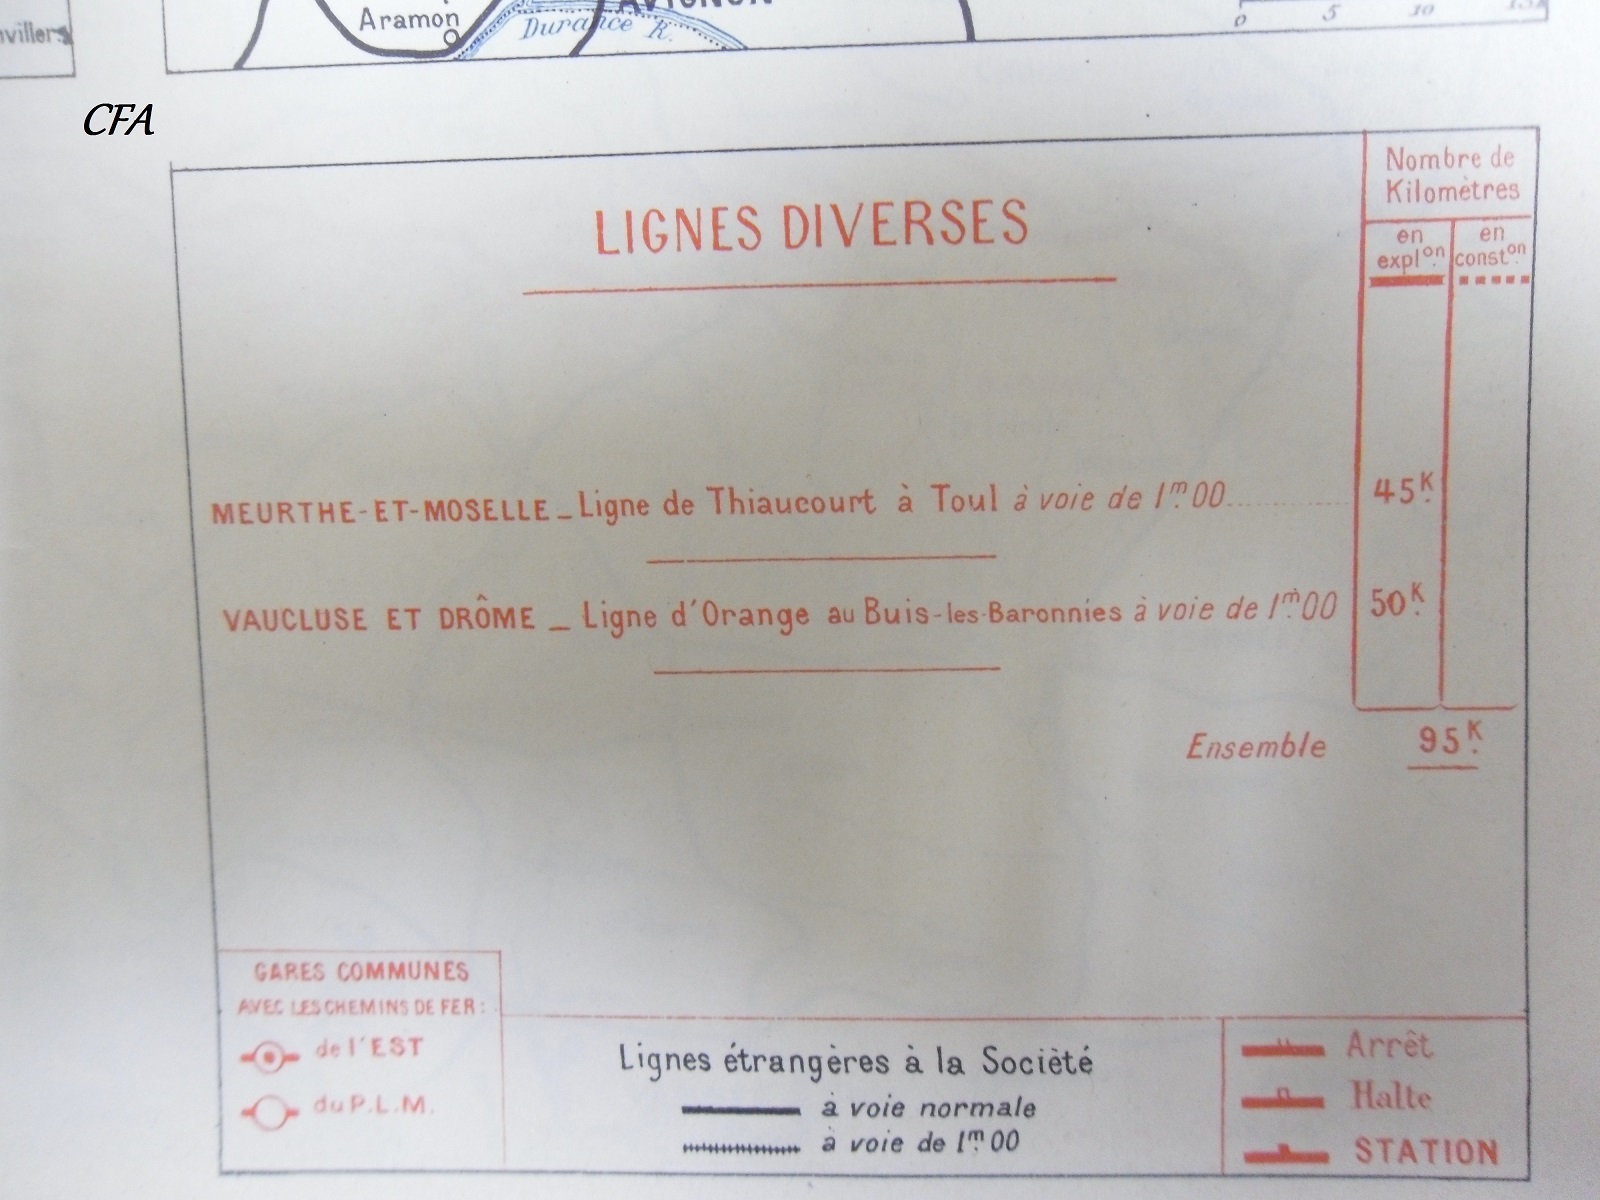 Aramon
Durance R.
AVIGNON
0 5 10 15
CFA
Nombre de
Kilomètres
LIGNES DIVERSES
en
explon
en
conston
MEURTHE-ET-MOSELLE _ Ligne de Thiaucourt à Toul à voie de 1m.00 45K.
VAUCLUSE ET DRÔME _ Ligne d'Orange au Buis-les-Baronnies à voie de 1m.00 50K.
Ensemble 95K.
GARES COMMUNES
AVEC LES CHEMINS DE FER:
de l'EST
du P.L.M.
Lignes étrangères à la Socièté
à voie normale
à voie de 1m.00
Arrêt
Halte
STATION